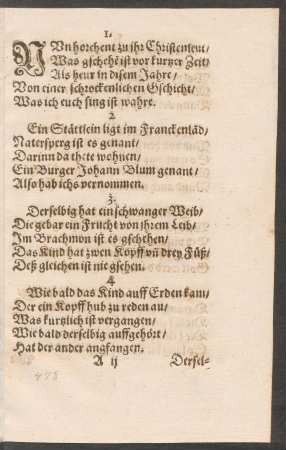 1.
NUn horchent zu ihr Christenleut/
Was gschehẽ ist vor kurtzer Zeit/
Als heur in disem Jahre/
Von einer schrockenlichen Gschicht/
Was ich euch sing ist wahre.
2.
Ein Stättlein ligt im Franckenlãd/
Natersperg ist es genant/
Darinn da thete wohnen/
Ein Burger Johann Blum genant/
Also hab ichs vernommen.
3.
Derselbig hat ein schwanger Weib/
Die gebar ein Frucht von jhrem Leib/
Im Brachmon ist es gschehen/
Das Kind hat zwen Kopff vñ drey Füß/
Deß gleichen ist nie gsehen.
4.
Wie bald das Kind auff Erden kam/
Der ein Kopff hub zu reden an/
Was kurtzlich ist vergangen/
Wie bald derselbig auffgehört/
Hat der ander angfangen.
A ij Dersel-